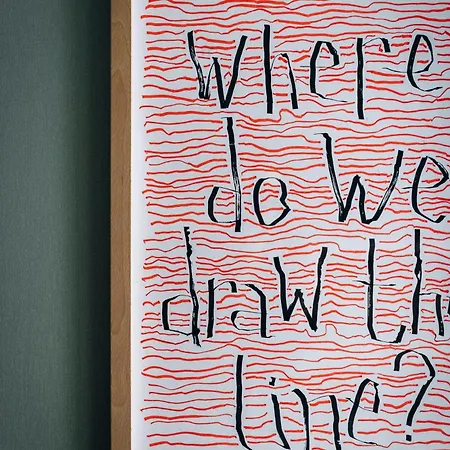 where
do we
draw th
line?